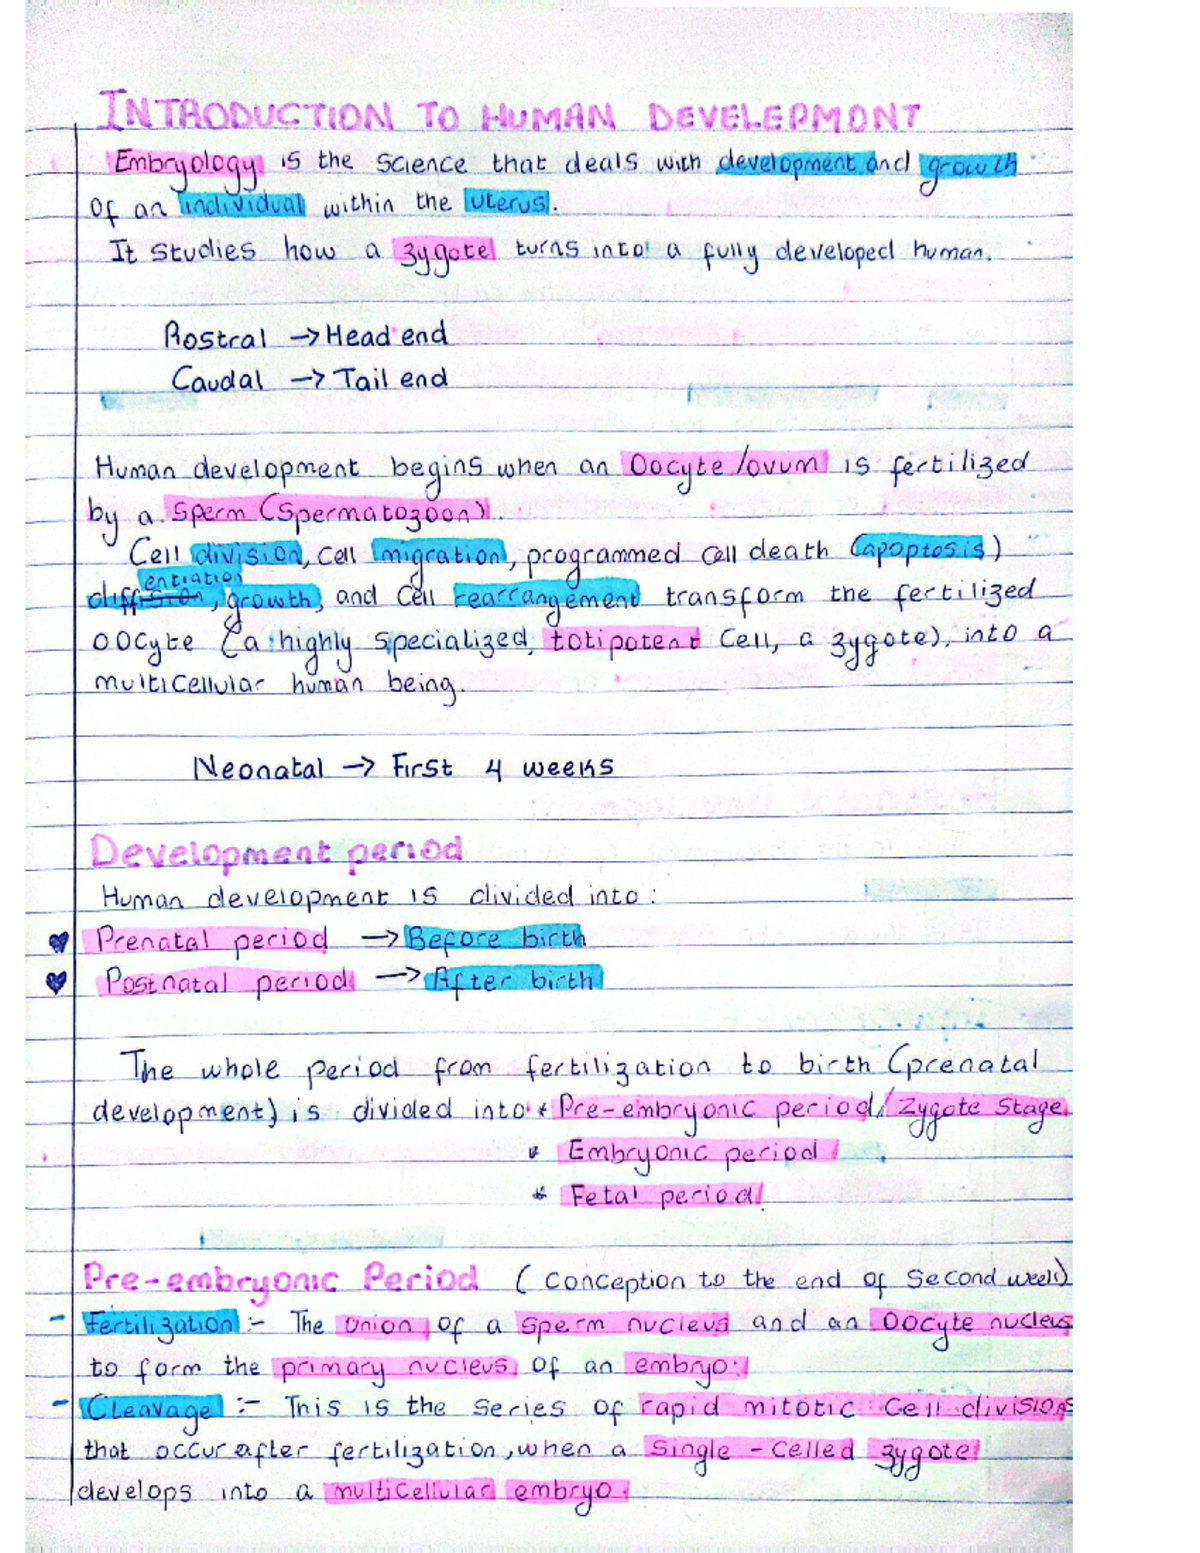 INTRODUCTION TO HUMAN DEVELEPMONT
Embryology is the science that deals with development and growth
of an individual within the uterus.
It studies how a zygote turns into a fully developed human.
Rostral → Head end
Caudal → Tail end
Human development begins when an Oocyte/ovum is fertilized
by a sperm (spermatozoon).
Cell division, cell migration, programmed cell death (apoptosis)
entiation
diffusion, growth, and cell rearrangement transform the fertilized
oocyte (a highly specialized, totipotent cell, a zygote), into a
multicellular human being.
Neonatal → First 4 weeks
Development period
Human development is divided into:
♥ Prenatal period → Before birth
♥ Postnatal period → After birth
The whole period from fertilization to birth (prenatal
development) is divided into * Pre-embryonic period/Zygote Stage
* Embryonic period
* Fetal period
Pre-embryonic Period (Conception to the end of second week)
- Fertilization:- The union of a sperm nucleus and an oocyte nucleus
to form the primary nucleus of an embryo.
- Cleavage:- This is the series of rapid mitotic cell divisions
that occur after fertilization, when a single-celled zygote
develops into a multicellular embryo.